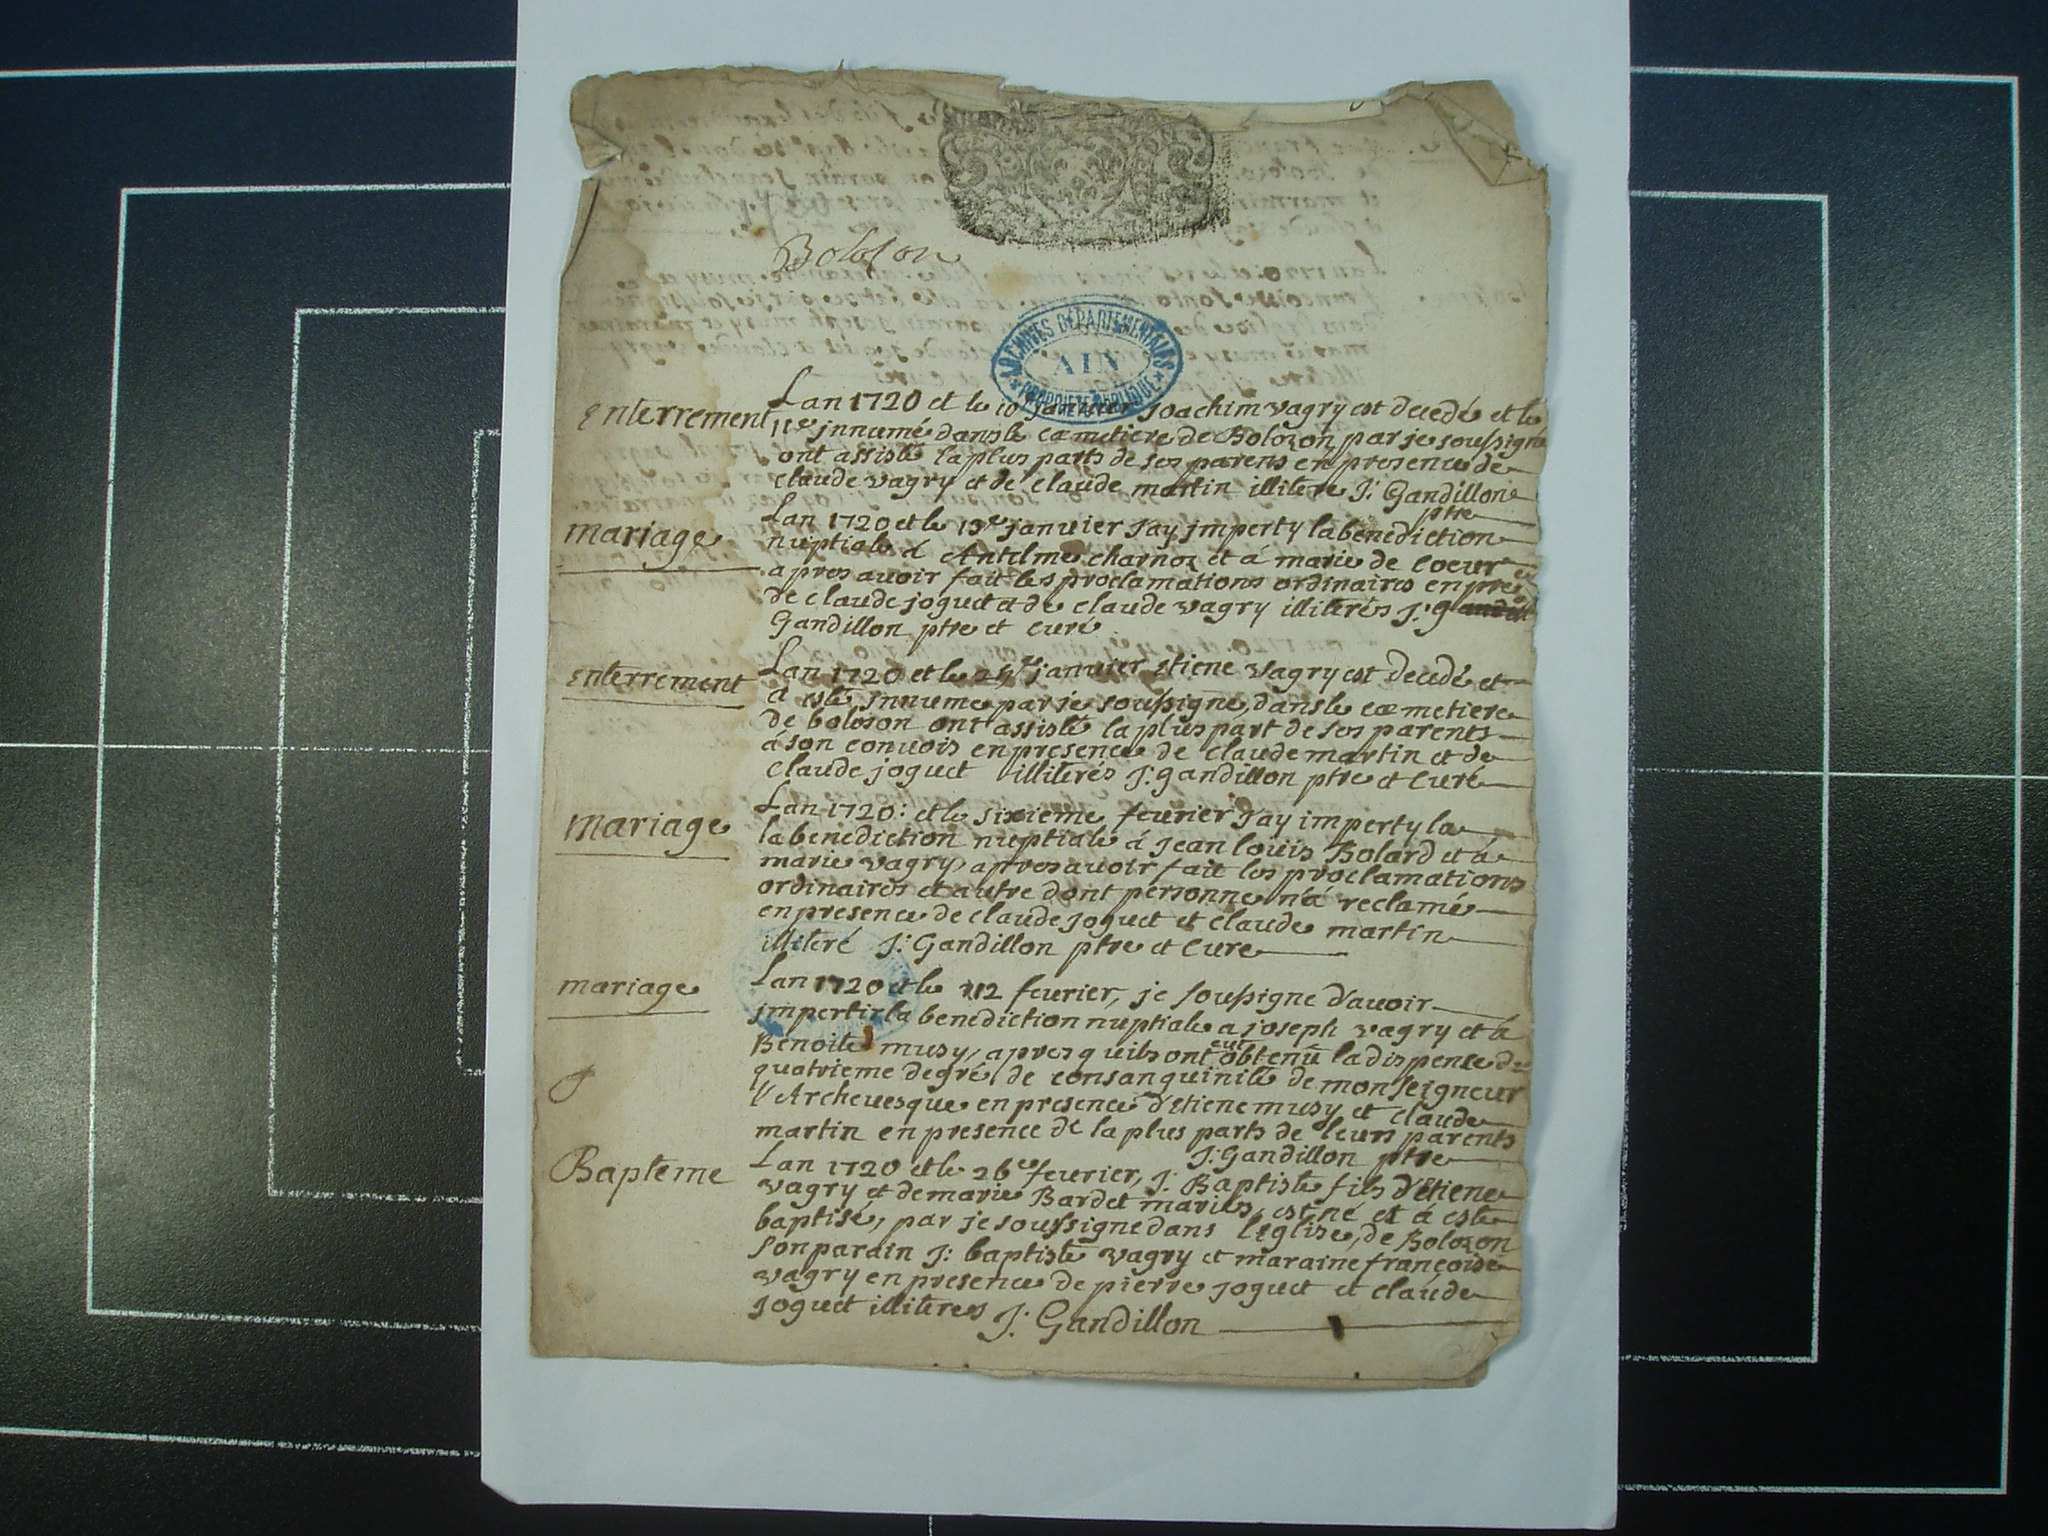 Bolozon
ARCHIVES DÉPARTEMENTALES
AIN
PROPRIÉTÉ PUBLIQUE
enterrement
Lan 1720 et le 10e janvier joachim vagry est decedé et le
11e jnnumé dans le cœmetiere de Bolozon par je soussigné
ont assisté la plus parts de ses parens en presence de
claude vagry et de claude martin illitere J: Gandillon
ptre
mariage
Lan 1720 et le 13e janvier Jay jmperty la benediction
nuptiale á Antelme charnoz et á marie de coeur
apres avoir fait les proclamations ordinaires en pre
de claude joguet et de claude vagry illiterés J: Gandill
Gandillon ptre et curé
enterrement
Lan 1720 et le janvier etiene vagry est decedé et
á esté jnnume par je soussigne, dans le cœmetiere
de bolozon ont assisté la plus part de ses parents
á son convois en presence de claude martin et de
claude joguet illiterés J: gandillon ptre et curé
Mariage
Lan 1720: et le sixieme fevrier Jay imperty la
la benediction nuptiale á jean louis Bolard et á
marie vagry, apres avoir fait les proclamations
ordinaires et autre dont personne n'á reclamé
en presence de claude joguet et claude martin
illiteré J: Gandillon ptre et cure
mariage
Lan 1720 et le 12 fevrier, je soussigne d'avoir
jmpertir la benediction nuptiale a joseph vagry et á
Benoite musy, apres quils ont eut obtenú la dispence du
quatrieme degré de consanguinité de monseigneur
l'Archevesque en presence d'etiene musy et claude
martin en presence de la plus parts de leurs parents
J: Gandillon ptre
Bapteme
Lan 1720 et le 26e fevrier, J: Baptiste fils d'étiene
vagry et de marie Bardet mariés, est né et á esté
baptisé, par je soussigne dans l'eglise, de Bolozon
son parain J: baptiste vagry et maraine françoise
vagry en presence de pierre joguet et claude
joguet illiteres J: Gandillon